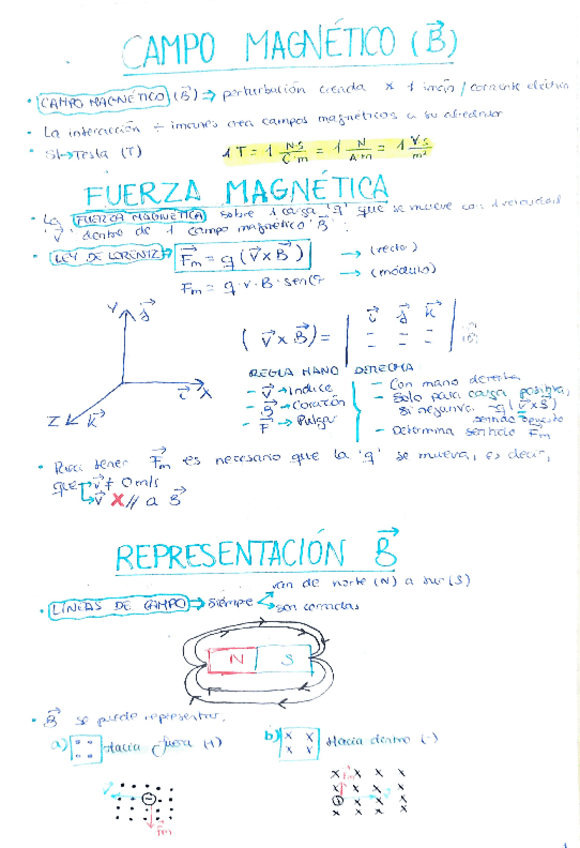 CAMPO MAGNÉTICO (B⃗)
• CAMPO MAGNÉTICO (B⃗) → perturbación creada x 1 imán / corriente eléctrica
- La interacción ÷ imanes crea campos magnéticos a su alrededor
• SI → Tesla (T) 1 T = 1 N·s/C·m = 1 N/A·m = 1 V·s/m²
FUERZA MAGNÉTICA
• La FUERZA MAGNÉTICA sobre 1 carga 'q' que se mueve con 1 velocidad
'v⃗' dentro de 1 campo magnético 'B⃗':
• LEY DE LORENTZ → F⃗m = q (v⃗ x B⃗) → (vector)
Fm = q · v · B · sen → (módulo)
Y j⃗
(v⃗ x B⃗) = | i⃗ j⃗ k⃗ |
i⃗ X
Z k⃗
REGLA MANO DERECHA
- v⃗ → Índice
- B⃗ → Corazón
- F⃗ → Pulgar
- Con mano derecha
- Solo para carga positiva,
si negativa -q(v⃗ x B⃗)
sentido opuesto
- Determina sentido F⃗m
• Para tener F⃗m es necesario que la 'q' se mueva, es decir,
que → v⃗ ≠ 0 m/s
→ v⃗ X // a B⃗
REPRESENTACIÓN B⃗
• LÍNEAS DE CAMPO → Siempre
van de norte (N) a sur (S)
son cerradas
N S
• B⃗ se puede representar,
a) Hacia fuera (+) b) x x x x Hacia dentro (-)
F⃗m
F⃗m
1